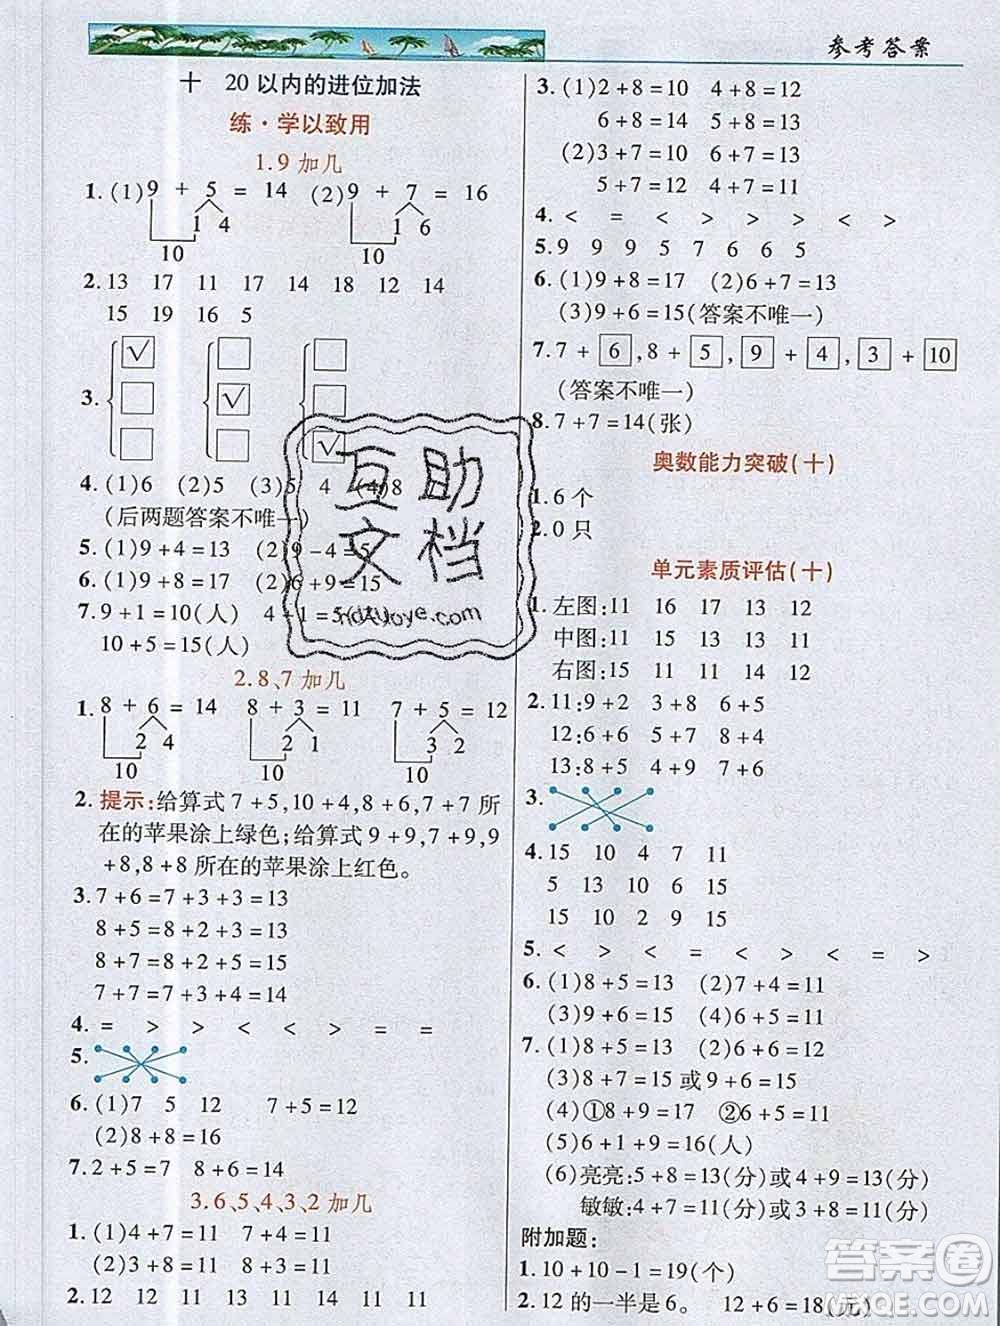 参考答案
十 20以内的进位加法
练·学以致用
1.9加几
1. (1)9 + 5 = 14 (2)9 + 7 = 16
1 4 1 6
10 10
2. 13 17 11 17 14 18 12 14
15 19 16 5
3. √ √ √
4. (1)6 (2)5 (3)5 4 (4)8
(后两题答案不唯一)
5. (1)9+4=13 (2)9-4=5
6. (1)9+8=17 (2)6+9=15
7. 9+1=10(人) 4+1=5
10+5=15(人)
2.8、7加几
1. 8 + 6 = 14 8 + 3 = 11 7 + 5 = 12
2 4 2 1 3 2
10 10 10
2. 提示:给算式7+5,10+4,8+6,7+7所
在的苹果涂上绿色;给算式9+9,7+9,9
+8,8+8所在的苹果涂上红色。
3. 7+6=7+3+3=13
8+5=8+2+3=13
8+8=8+2+6=16
7+7=7+3+4=14
4. = > > < < > = =
5.
6. (1)7 5 12 7+5=12
(2)8+8=16
7. 2+5=7 8+6=14
3.6、5、4、3、2加几
1. (1)4+7=11 7+4=11
(2)3+8=11 8+3=11
2. 12 12 11 11 13 11 11
3. (1)2+8=10 4+8=12
6+8=14 5+8=13
(2)3+7=10 6+7=13
5+7=12 4+7=11
4. < = < > > > < >
5. 9 9 9 5 7 6 6 5
6. (1)9+8=17 (2)6+7=13
(3)9+6=15(答案不唯一)
7. 7+6,8+5,9+4,3+10
(答案不唯一)
8. 7+7=14(张)
奥数能力突破(十)
1. 6个
2. 0只
单元素质评估(十)
1. 左图:11 16 17 13 12
中图:11 15 13 13 11
右图:15 11 11 14 12
2. 11:9+2 3+8 6+5
12:6+6 5+7 8+4
13:8+5 4+9 7+6
3.
4. 15 10 4 7 11
5 13 10 5 15
15 10 2 9 15
5. < > < = > > < = >
6. (1)8+5=13 (2)7+4=11
(3)9+6=15 (4)6+5=11
7. (1)8+5=13 (2)6+6=12
(3)8+7=15或9+6=15
(4)①8+9=17 ②6+5=11
(5)6+1+9=16(人)
(6)亮亮:5+8=13(分)或4+9=13(分)
敏敏:4+7=11(分)或3+8=11(分)
附加题:
1. 10+10-1=19(个)
2. 12的一半是6。 12+6=18(元)
互助
文档
答案圈
MXQE.COM